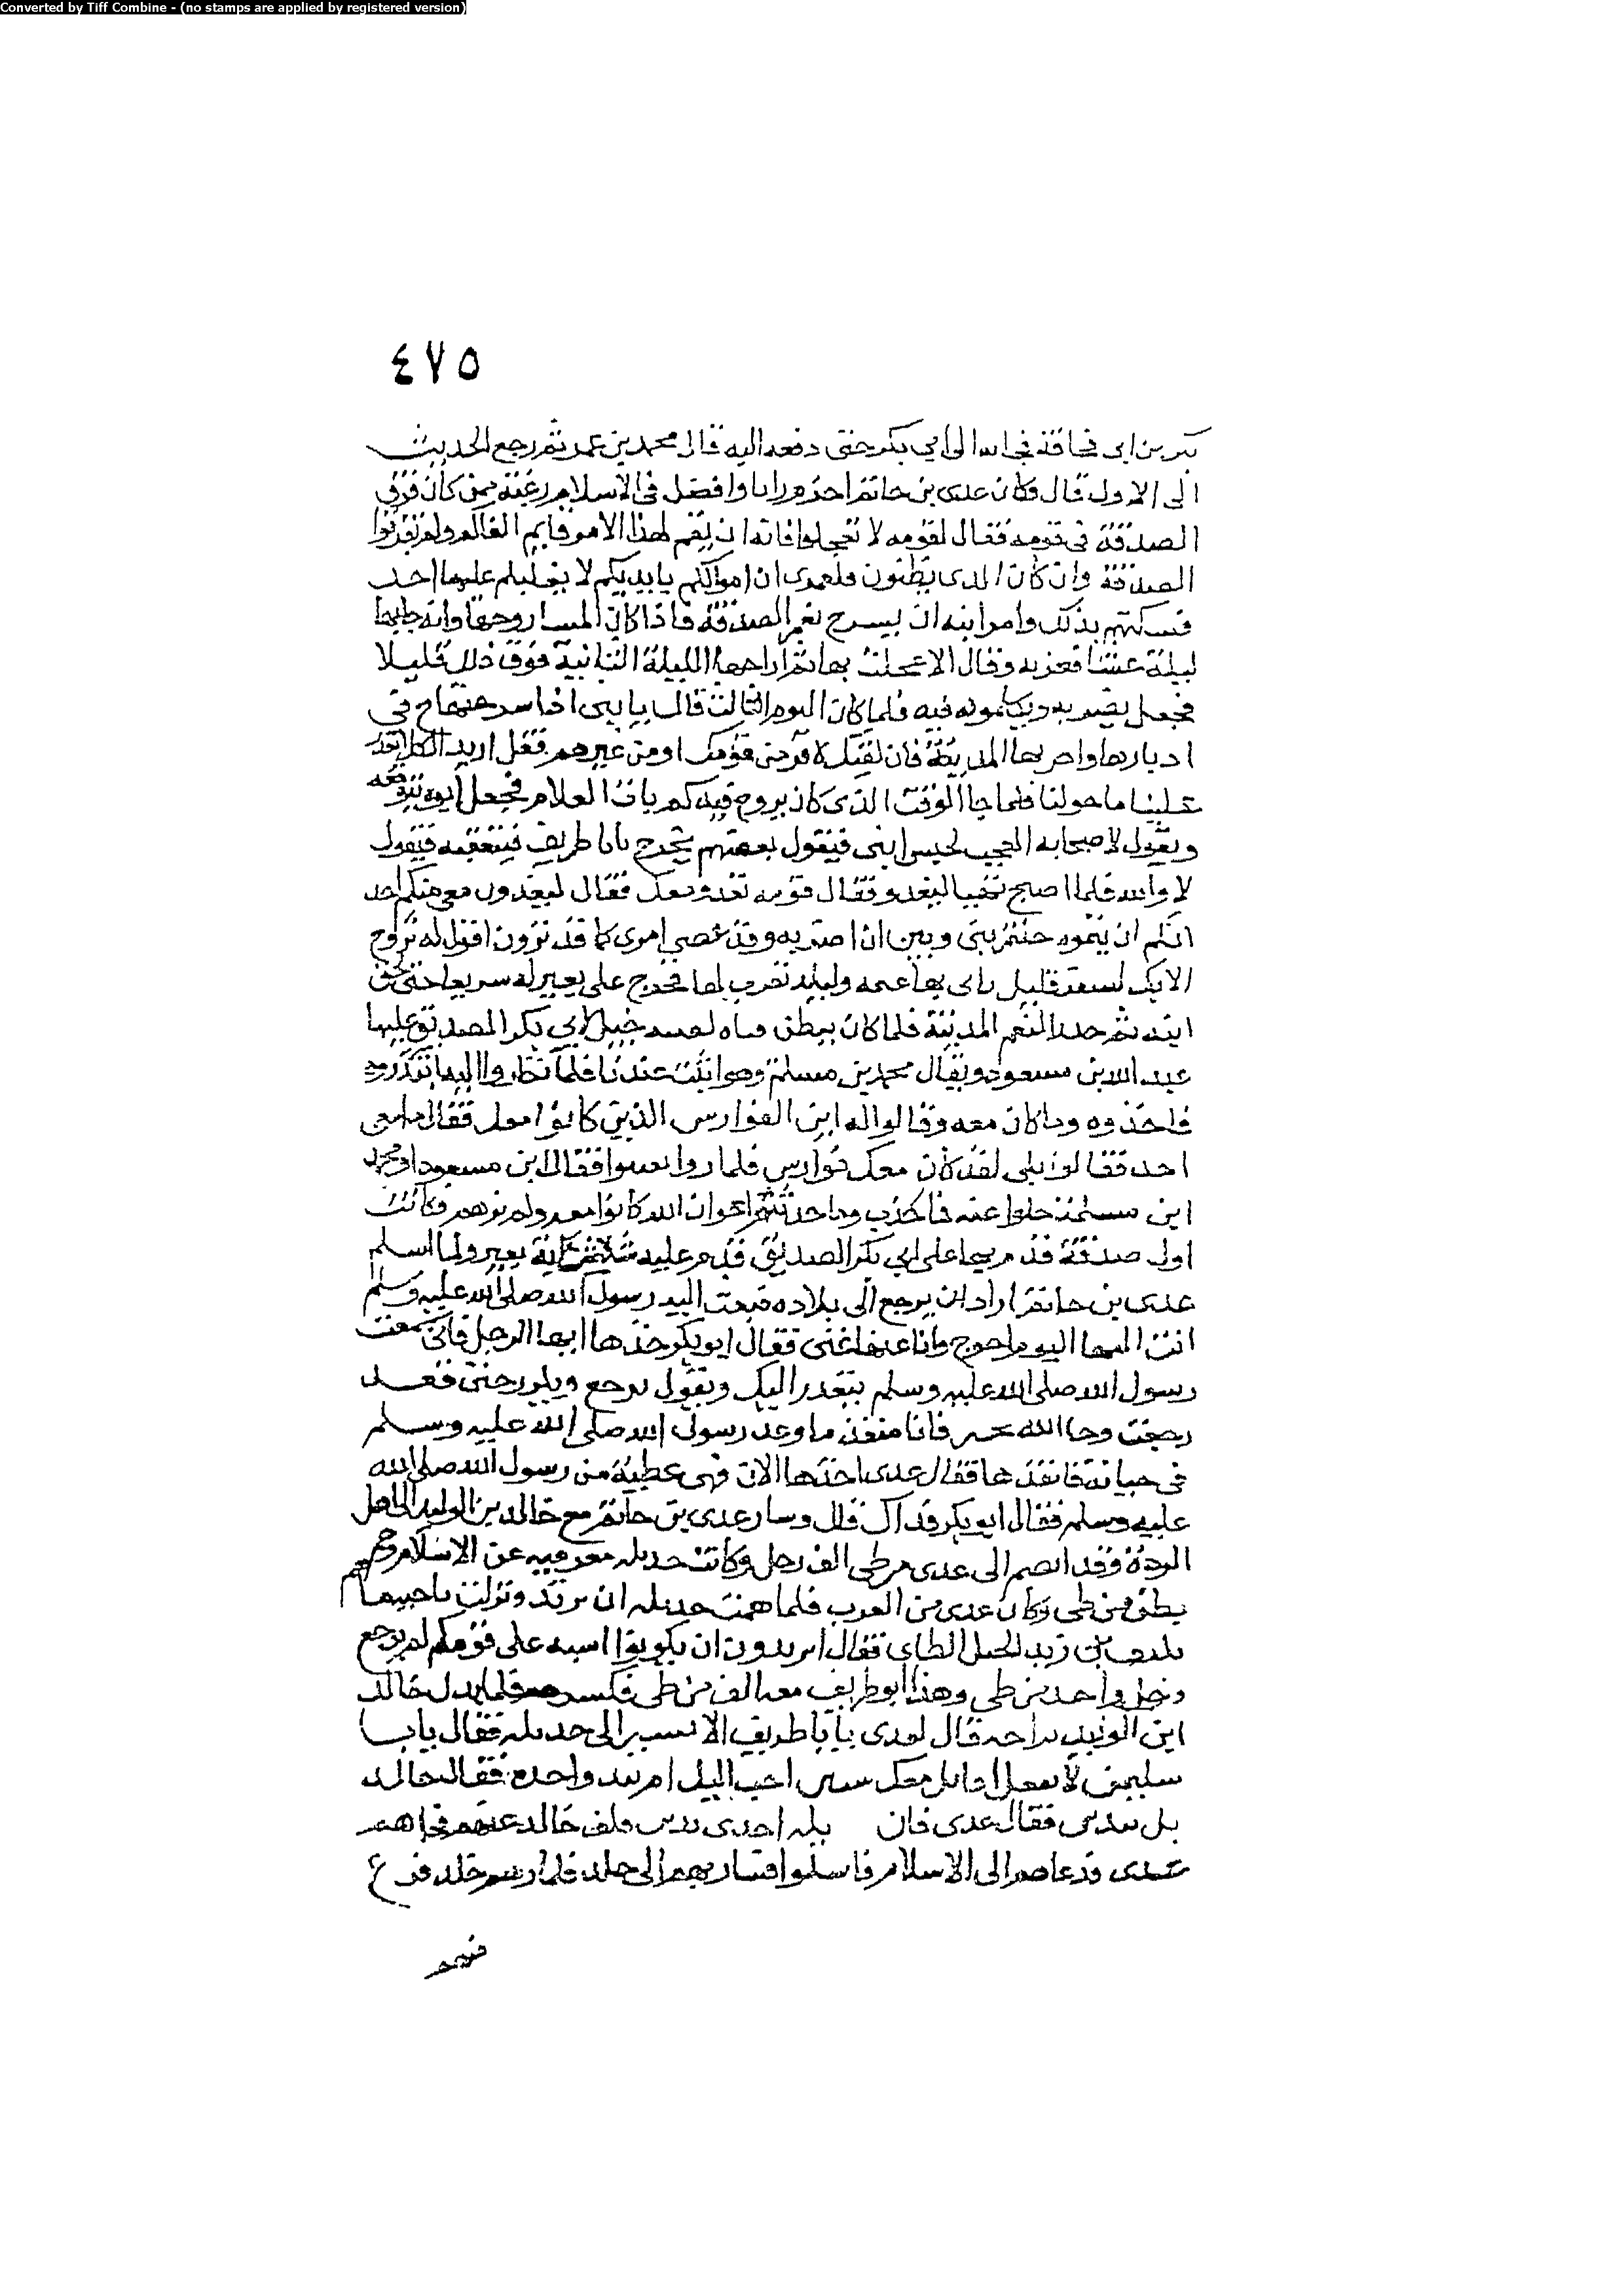 Converted by Tiff Combine - (no stamps are applied by registered version)
٤٧٥
بكر بن ابى قحافة فجا به الى ابي بكر حتى دفعه اليه قال محمد بن عمر ثم رجع الحديث
الى الاول قال وكان عدى بن حاتم احزم رايا وافضل فى الاسلام رغبة ممن كان فرق
الصدقة فى قومه فقال لقومه لا تعجلوا فانه ان يقم لهذا الامر قايم الفاكم ولم تفرقوا
الصدقة وان كان الذى تظنون فلعمرى ان اموالكم بايديكم لا يغلبكم عليها احد
فسكتهم بذلك وامر ابنه ان يسرح نعم الصدقة فاذا كان المسا روحها وانه جابها
ليلة عشا فضربه وقال الا عجلت بها ثم اراحها الليلة الثانية فوق ذلك قليلا
فجعل يضربه ويكلمونه فيه فلما كان اليوم الثالث قال يا بنى اذا سرحتها فصح فى
ادبارها وام بها المدينة فان لقيك لاق من قومك او من غيرهم فقل اريد الكلا تعذر
علينا ما حولنا فلما جا الوقت الذى كان يروح فيه لم يات الغلام فجعل ابوه يتوقعه
ويقول لاصحابه العجب لحبس ابنى فيقول بعضهم نخرج يابا طريف فنتبعه فيقول
لا والله فلما اصبح تهيا ليغدو فقال قومه نغدو معك فقال لا يغدون معى منكم احد
انكم ان رايتموه حلتم بينى وبين ان اضربه وقد عصى امرى كما قد ترون اقول له تروح
الابل لسفر قليل ياتى بها عتمة وليلة تعزب بها فخرج على بعير له سريعا حتى لحق
ابنه ثم حدر النعم الى المدينة فلما كان ببطن قناه لقيته خيل لابي بكر الصديق عليها
عبد الله بن مسعود ويقال محمد بن مسلمة وهو اثبت عندنا فلما نظروا اليه ابتدروه
فاخذوه وما كان معه وقالوا له اين الفوارس الذين كانوا معك فقال ما معى
احد فقالوا بلى لقد كان معك فوارس فلما راونا تغيبوا فقال ابن مسعود او محمد
ابن مسلمة خلوا عنه فما كذب وما كذبتم اعوان الله كانوا معه ولم يرهم فكانت
اول صدقة قدم بها على ابي بكر الصديق قدم عليه بثلاثماية بعير ولما اسلم
عدى بن حاتم اراد ان يرجع الى بلاده فبعث اليه رسول الله صلى الله عليه وسلم
انت اليها اليوم احوج وانا عنها غنى فقال ابو بكر خذها ايها الرجل فانى سمعت
رسول الله صلى الله عليه وسلم يتعذر اليك ويقول ترجع ويكون خير فقد
رجعت وجا الله بخير فانا منفذ ما وعد رسول الله صلى الله عليه وسلم
فى حياته فانفذها فقال عدى اخذها الان فهى عطية من رسول الله صلى الله
عليه وسلم فقال ابو بكر فذاك قال وسار عدى بن حاتم مع خالد بن الوليد الى اهل
الردة وقد انضم الى عدى من طى الف رجل وكانت جديله معرضه عن الاسلام وهم
بطن من طى وكان عدى من الغوث فلما همت جديله ان ترتد ونزلت ناحية جاهم
مكنف بن زيد الخيل الطاى فقال اتريدون ان تكونوا سبه على قومكم لم يرجع
رجل واحد من طى وهذا ابو طريف معه الف من طى فكسرهم فلما نزل خالد
ابن الوليد بزاخه قال لعدى يابا طريف الا نسير الى جديله فقال يابا
سليمن لا تفعل اقاتل معك بيدين احب اليك ام بيد واحده فقال خالد
بل بيدين فقال عدى فان جديله احدى يدى فكف خالد عنهم فجاهم
عدى فدعاهم الى الاسلام فاسلموا فسار بهم الى خالد فلما راهم خالد فزع
منهم